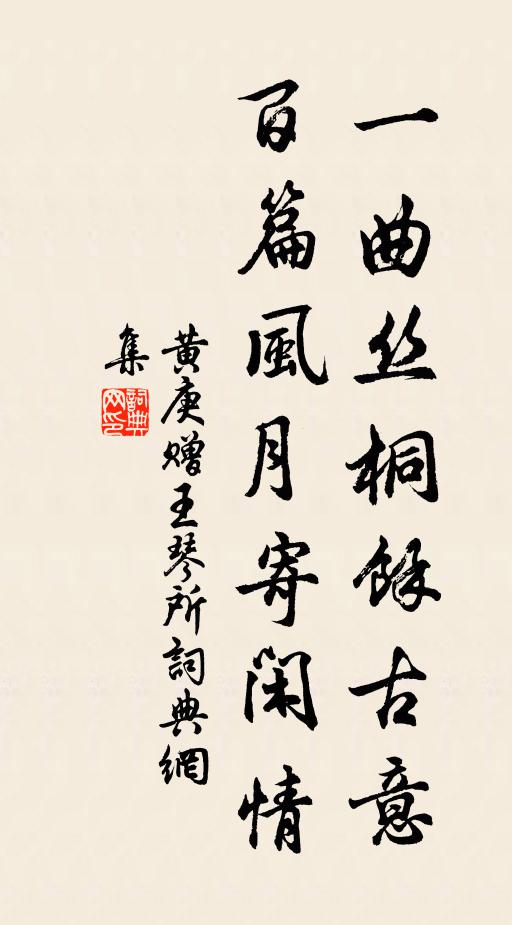 一曲丝桐餘古意
百篇風月寄闲情
黄庚赠王琴所詞典網
集
詞典
网印